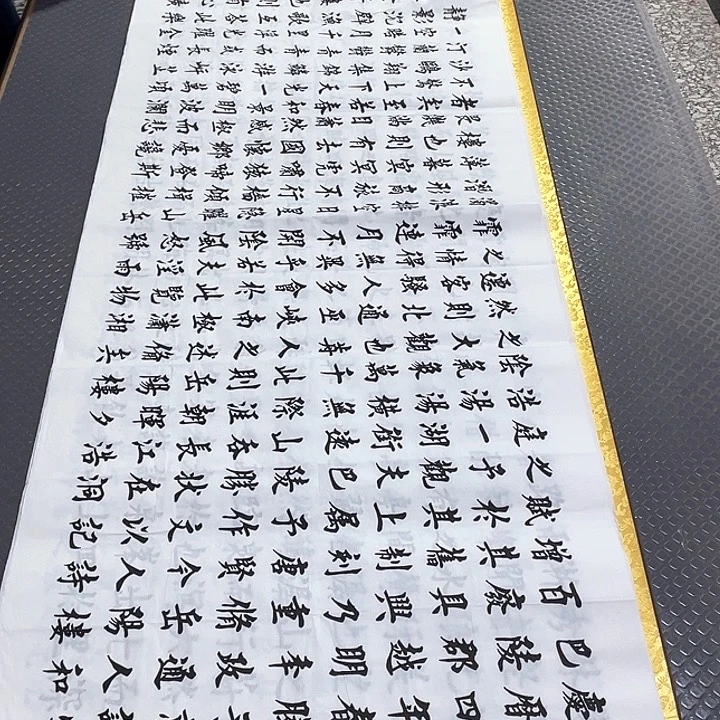 慶曆四年春滕
巴陵郡越明年政通人和
百廢具興乃重修岳陽樓
增其舊制刻唐賢今人詩
賦於其上屬予作文以記
之予觀夫巴陵勝狀在洞
庭一湖銜遠山吞長江浩
浩湯湯橫無際涯朝暉夕
陰氣象萬千此則岳陽樓
之大觀也前人之述備矣
然則北通巫峽南極瀟湘
遷客騷人多會於此覽物
之情得無異乎若夫淫雨
霏霏連月不開陰風怒號
濁浪排空日星隱耀山岳
潛形商旅不行檣傾楫摧
薄暮冥冥虎嘯猿啼登斯
樓也則有去國懷鄉憂讒
畏譏滿目蕭然感極而悲
者矣至若春和景明波瀾
不驚上下天光一碧萬頃
沙鷗翔集錦鱗游泳岸芷
汀蘭郁郁青青而或長煙
一空皓月千里浮光躍金
靜影沉璧漁歌互答此樂